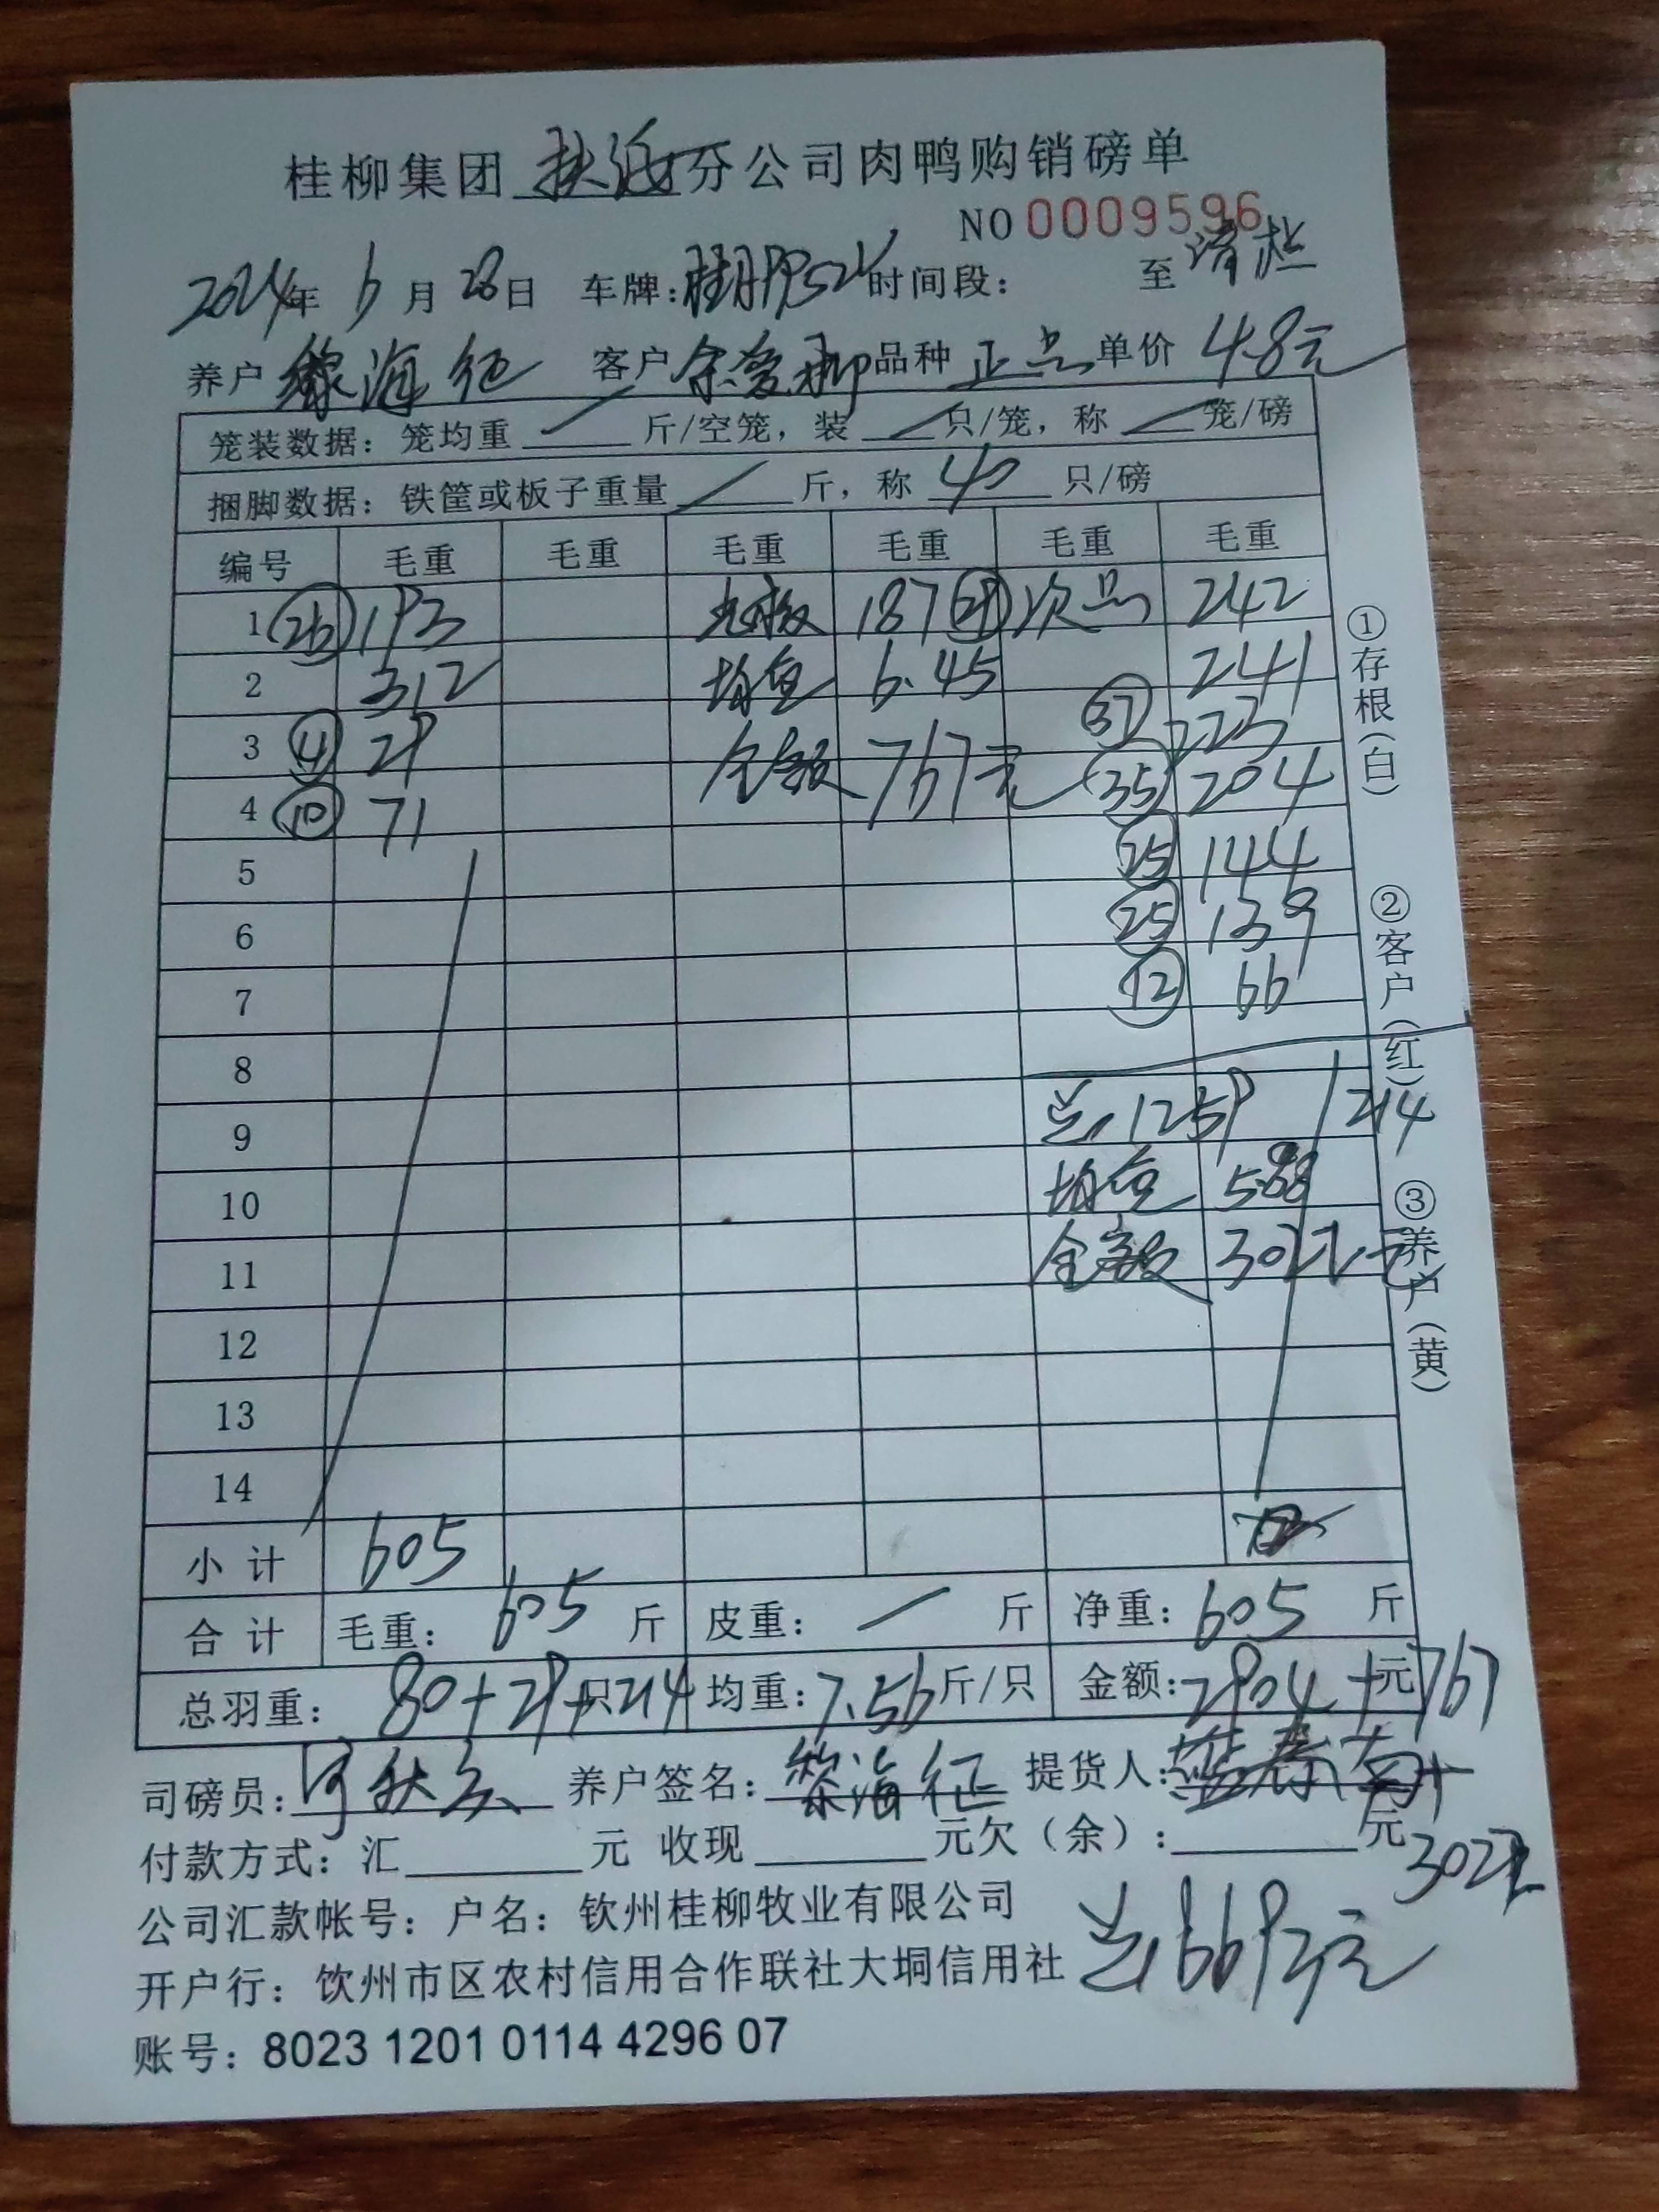 桂柳集团 分公司肉鸭购销磅单
NO 0009596
2024年 6 月 28 日 车牌: 时间段: 至 清栏
养户 黎海征 客户 余爱柳 品种 正品 单价 4.8元
笼装数据: 笼均重 / 斤/空笼, 装 / 只/笼, 称 / 笼/磅
捆脚数据: 铁筐或板子重量 / 斤, 称 40 只/磅
编号 毛重 毛重 毛重 毛重 毛重 毛重
1 (26) 193 187 (29) 次品 242
2 312 均重 6.45 241
3 (4) 29 金额 767元 (37) 223
4 (10) 71 (35) 204
5 (25) 144
6 (25) 139
7 (12) 66
8
9 总 1259 214
10 均重 5.88
11 金额 3022元
12
13
14
小计 605
合计 毛重: 605 斤 皮重: / 斤 净重: 605 斤
总羽重: 80+29+只214 均重: 7.56 斤/只 金额: 2904+元767
司磅员: 养户签名: 黎海征 提货人: +
付款方式: 汇 元 收现 元欠(余): 元 3022
公司汇款帐号: 户名: 钦州桂柳牧业有限公司
开户行: 钦州市区农村信用合作联社大垌信用社 总 6692元
账号: 8023 1201 0114 4296 07
①存根(白) ②客户(红) ③养户(黄)